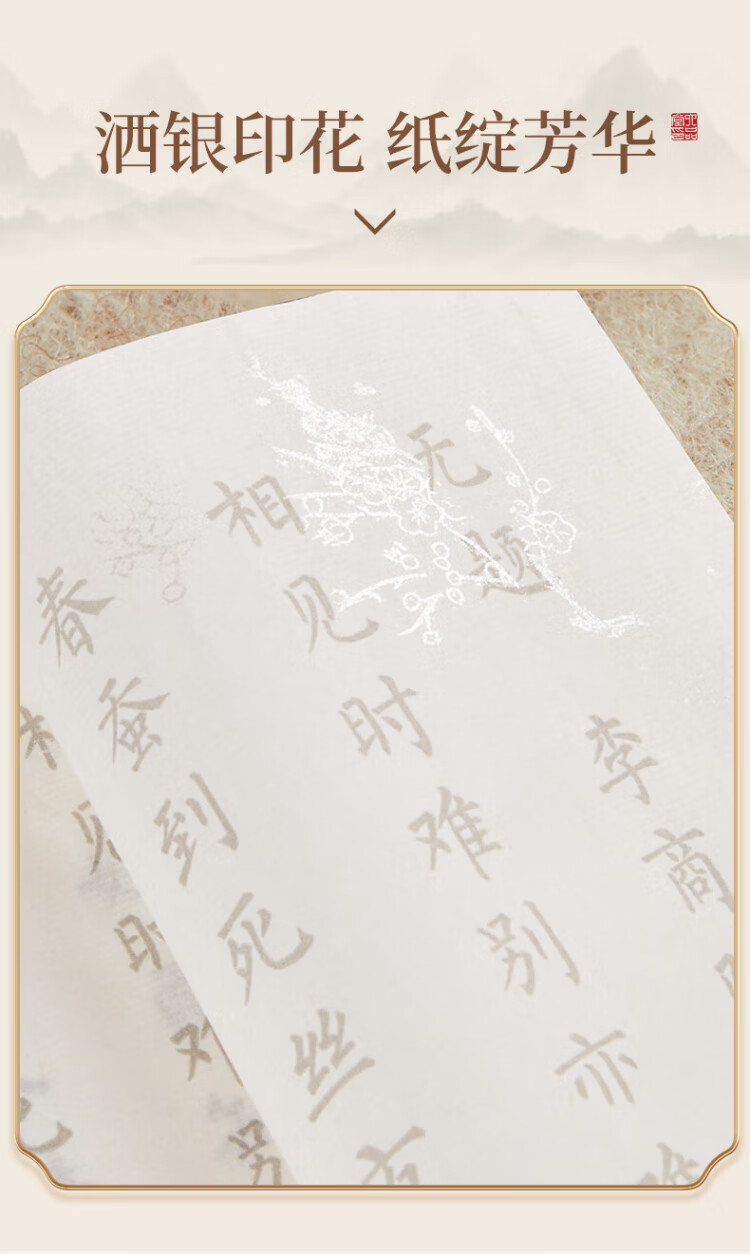 洒银印花 纸绽芳华
无题 李商
相见时难别亦难
春蚕到死丝方
相见时难别